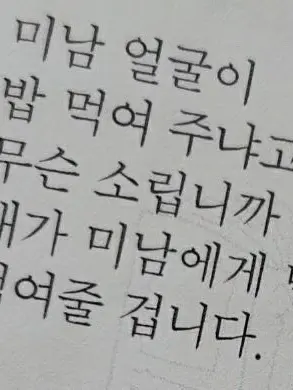 미남 얼굴이
밥 먹여 주냐고
무슨 소립니까
내가 미남에게
먹여줄 겁니다.